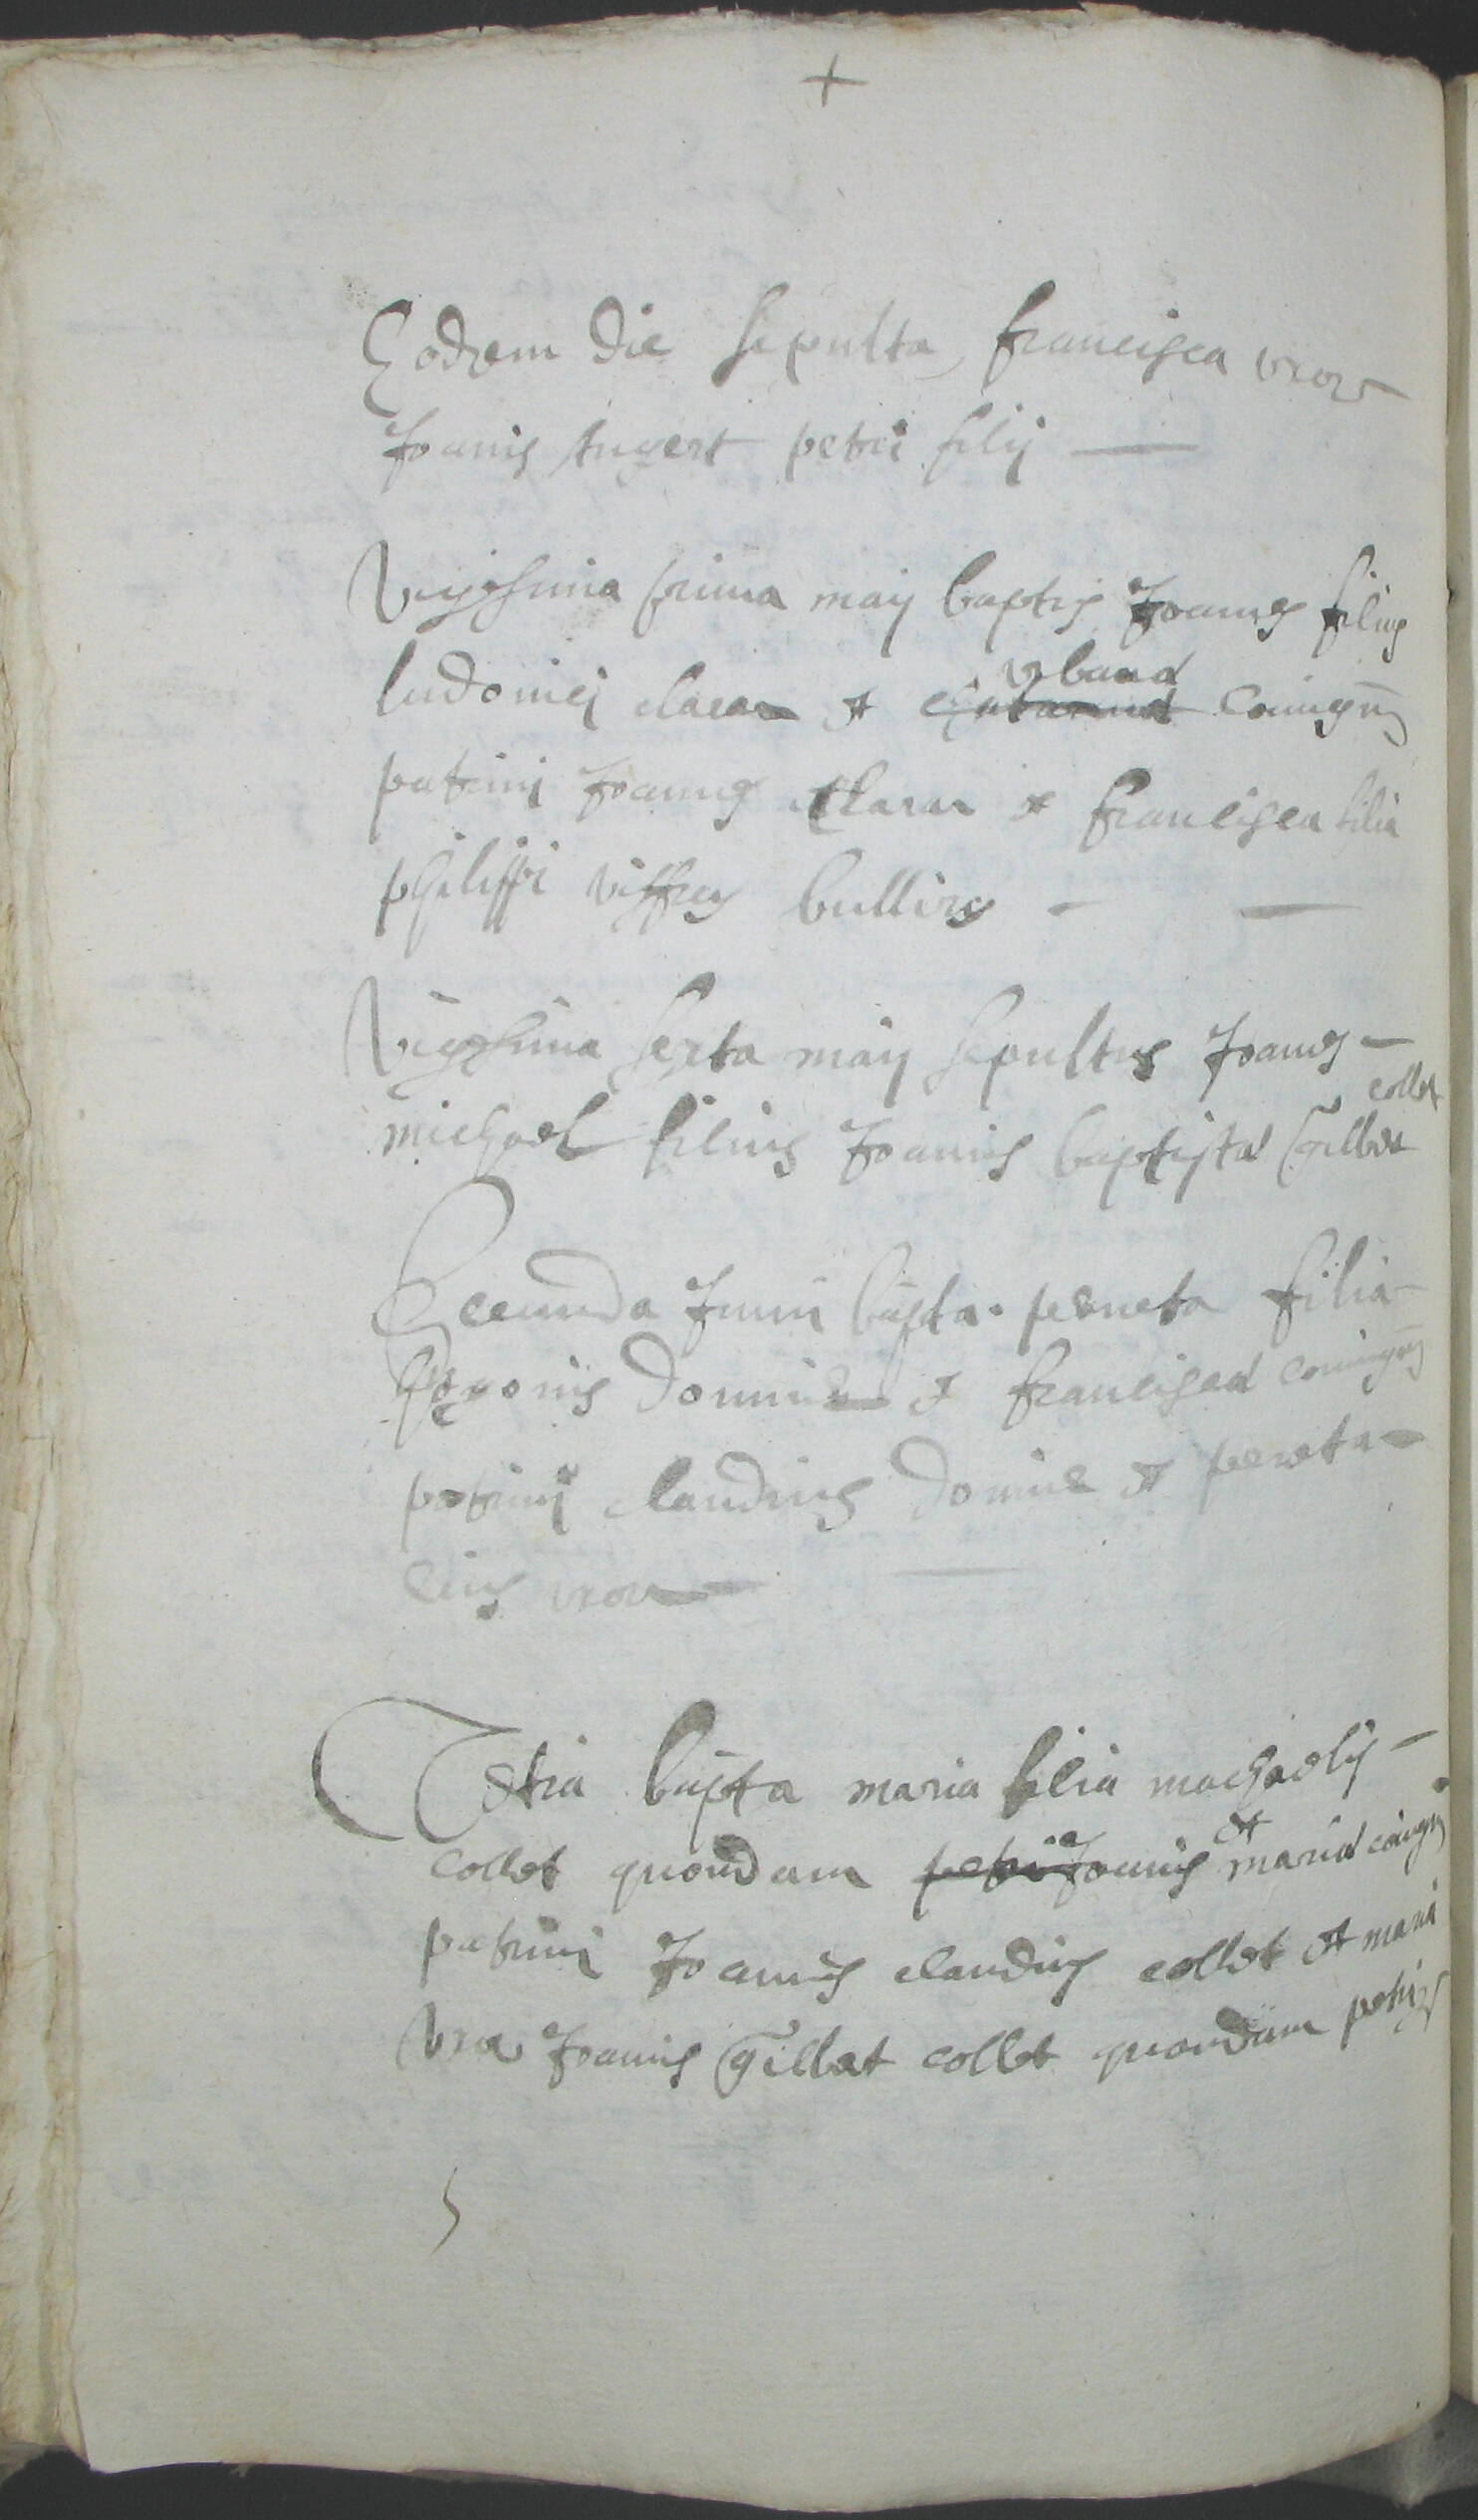 +
Eodem die sepulta francisca uxor
Joanis tugert petri filij
Vigesima prima maij baptis Joanes filius
ludovici claran et urbana coniugu
patrini Joanes claran et francisca filia
philippi viffrey
Vigesima sexta maij sepultus Joanes
collet
michael filius Joanis baptista Gillet
Secunda Junii bapta perneta filia
domine et francisca coniugu
patrini claudius domine et perneta
eius uxor
Tertia bapta maria filia michaelis
collet quondam petri Joanis et maria coniugu
patrini Joanes claudius collet et maria
uxor Joanis Gillet collet quondam petri